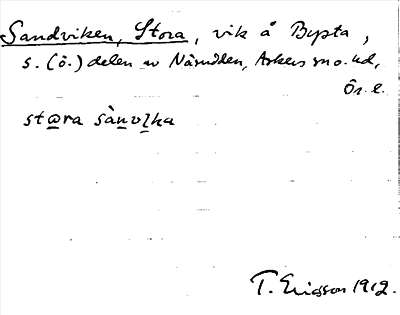 Sandviken, Stora, vik å Bysta,
s. (ö.) delen av Närudden, Askers sn o. hd,
Ör. l.
stora sànvıka
T. Ericsson 1912.